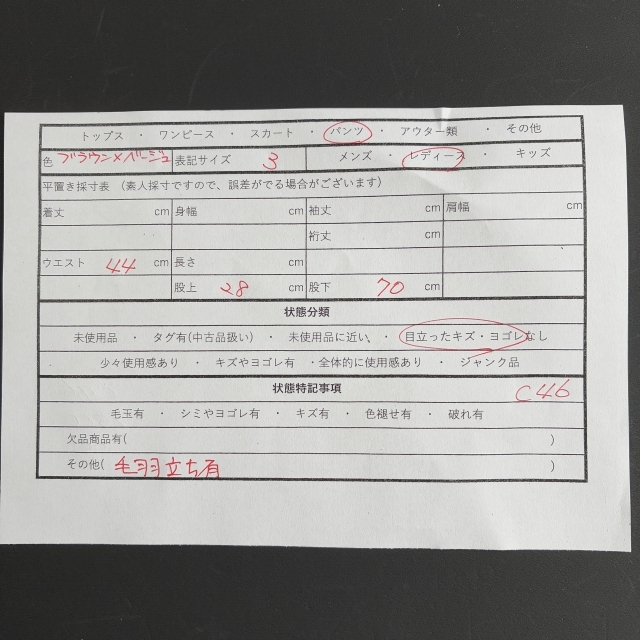 トップス ・ ワンピース ・ スカート ・ パンツ ・ アウター類 ・ その他
色 ブラウン×ベージュ 表記サイズ 3 メンズ ・ レディース ・ キッズ
平置き採寸表 （素人採寸ですので、誤差がでる場合がございます）
着丈 cm 身幅 cm 袖丈 cm 肩幅 cm
裄丈 cm
ウエスト 44 cm 長さ cm
股上 28 cm 股下 70 cm
状態分類
未使用品 ・ タグ有(中古品扱い) ・ 未使用品に近い ・ 目立ったキズ・ヨゴレなし
少々使用感あり ・ キズやヨゴレ有 ・全体的に使用感あり ・ ジャンク品
状態特記事項
C46
毛玉有 ・ シミやヨゴレ有 ・ キズ有 ・ 色褪せ有 ・ 破れ有
欠品商品有( )
その他( 毛羽立ち有 )